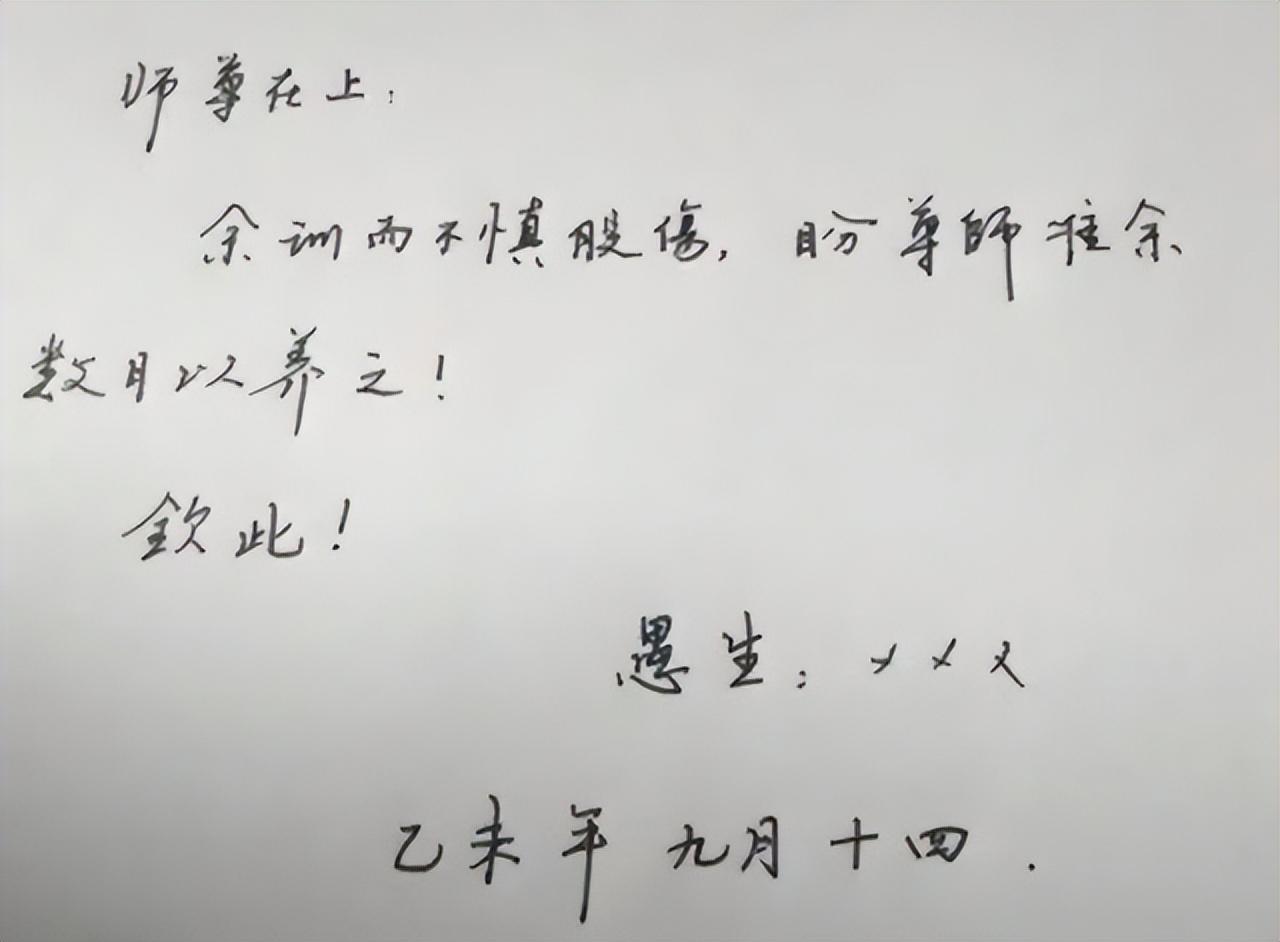 师尊在上：
余训而不慎股傷，盼尊師准余
数日以养之！
欽此！
愚生：×××
乙未年九月十四.